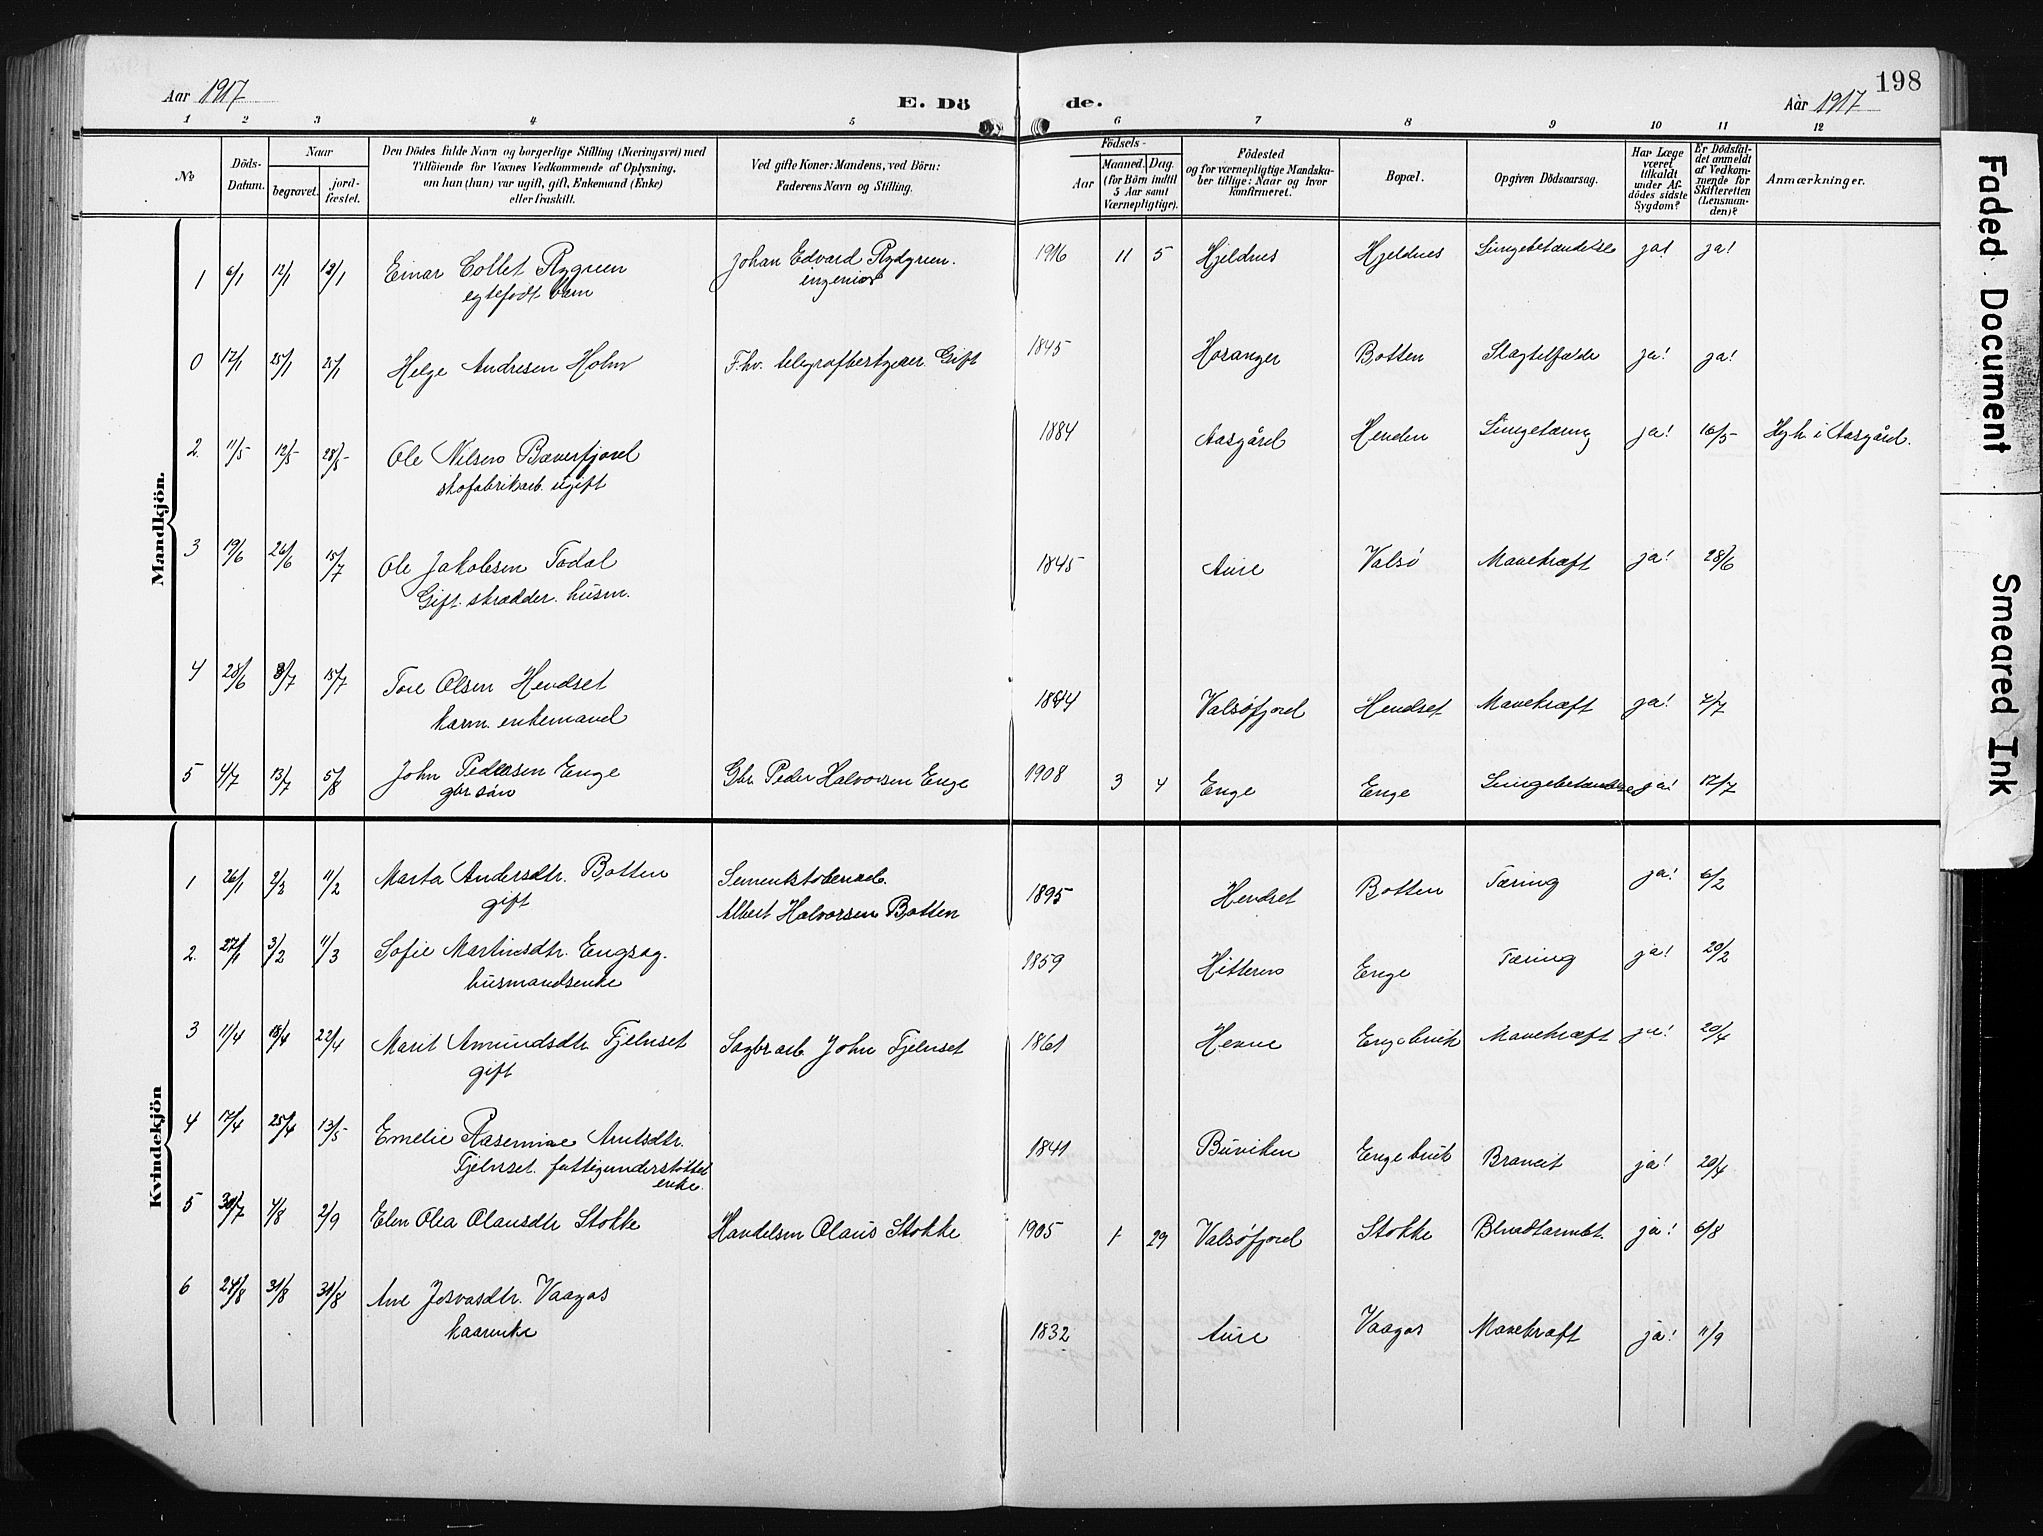 Aar 1917
E. Dö de.
198
Aar 1917
1 2 3 4 5 6 7 8 9 10 11 12
No
Döds-Datum.
Naar
begravet. jord-fæstet.
Den Dödes fulde Navn og borgerlige Stilling (Næringsvei) med
Tilföiende for Voxnes Vedkommende af Oplysning,
om han (hun) var ugift, gift, Enkemand (Enke)
eller fraskilt.
Ved gifte Koner: Mandens, ved Börn:
Faderens Navn og Stilling.
Födsels-
Aar
Maaned. Dag.
(for Börn indtil
5 Aar samt
Værnepligtige).
Födested
og for værnepligtige Mandska-
ber tillige: Naar og hvor
konfirmeret.
Bopæl.
Opgiven Dödsaarsag.
Har Læge
været
tilkaldt
under Af-
dödes sidste
Sygdom?
Er Dödsfal-
det anmeldt
af Vedkom-
mende for
Skifteretten
(Lensman-
den)?
Anmærkninger.
Mandkjön.
1 6/1 12/1 12/1 Einar Collet Rygreen Johan Edvard Rydgreen. 1916 11 5 Hjeldnes Hjeldnes Lungebetændelse ja! ja!
egtefødt barn ingeniør
0 17/1 25/1 25/1 Helge Andresen Holm F.hv. telegrafbestyrer. Gift 1845 Horanger Botten Slagtilfælde ja! ja!
2. 11/5 12/5 28/5 Ole Nilsen Bæverfjord 1884 Aasgård Henden Lungetæring ja! 16/5 Hgh. i Aasgård.
skofabrikarb. ugift
3 19/6 26/6 15/7 Ole Jakobsen Todal 1845 Aure Valsø Mavekræft ja! 28/6
Gift. skrædder. husm.
4 28/6 8/7 15/7 Tore Olsen Hendset 1844 Valsøfjord Hendset Mavekræft ja! 4/7
karm. enkemand
5 4/7 13/7 5/8 John Pedersen Enge Gbr. Peder Halvorsen Enge 1908 3 4 Enge Enge Lungebetændelse ja! 12/7
gbr søn
Kvindekjön
1 26/1 2/2 11/2 Marta Andersdtr. Botten Sementstøberiarb. 1895 Hendset Botten Tæring ja! 6/2
gift Albert Halvorsen Botten
2. 27/1 3/2 11/3 Sofie Martinsdtr. Engsag. 1859 Hitteren Enge Tæring ja! 20/2
husmandsenke
3 11/4 18/4 22/4 Marit Amundsdtr. Fjelnset Sagbr.arb. John Fjelnset 1861 Hevne Engebruk Mavekræft ja! 20/4
gift
4 17/4 25/4 13/5 Emelie Rasemine Arntsdtr. 1841 Buviken Engebruk Brancit ja! 20/4
Fjelnset. fattigunderstøttet
enke.
5 30/7 4/8 2/9 Elen Olea Olausdtr Stokke Handelsm Olaus Stokke 1905 1 29 Valsøfjord Stokke Blindtarmbt. ja! 6/8
6 24/8 31/8 31/8 Ane Jesvasdtr. Vaagos 1832 Aure Vaagos Mavekræft ja! 11/9
kaarenke
Faded Document
Smeared Ink